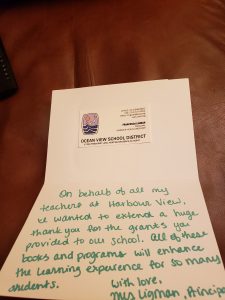 OCEAN VIEW SCHOOL DISTRICT
On behalf of all my
teachers at Harbour View,
I wanted to extend a huge
thank you for the grants you
provided to our school. All of these
books and programs will enhance
the learning experience for so many
students.
With love,
Mrs Ligman, Principal